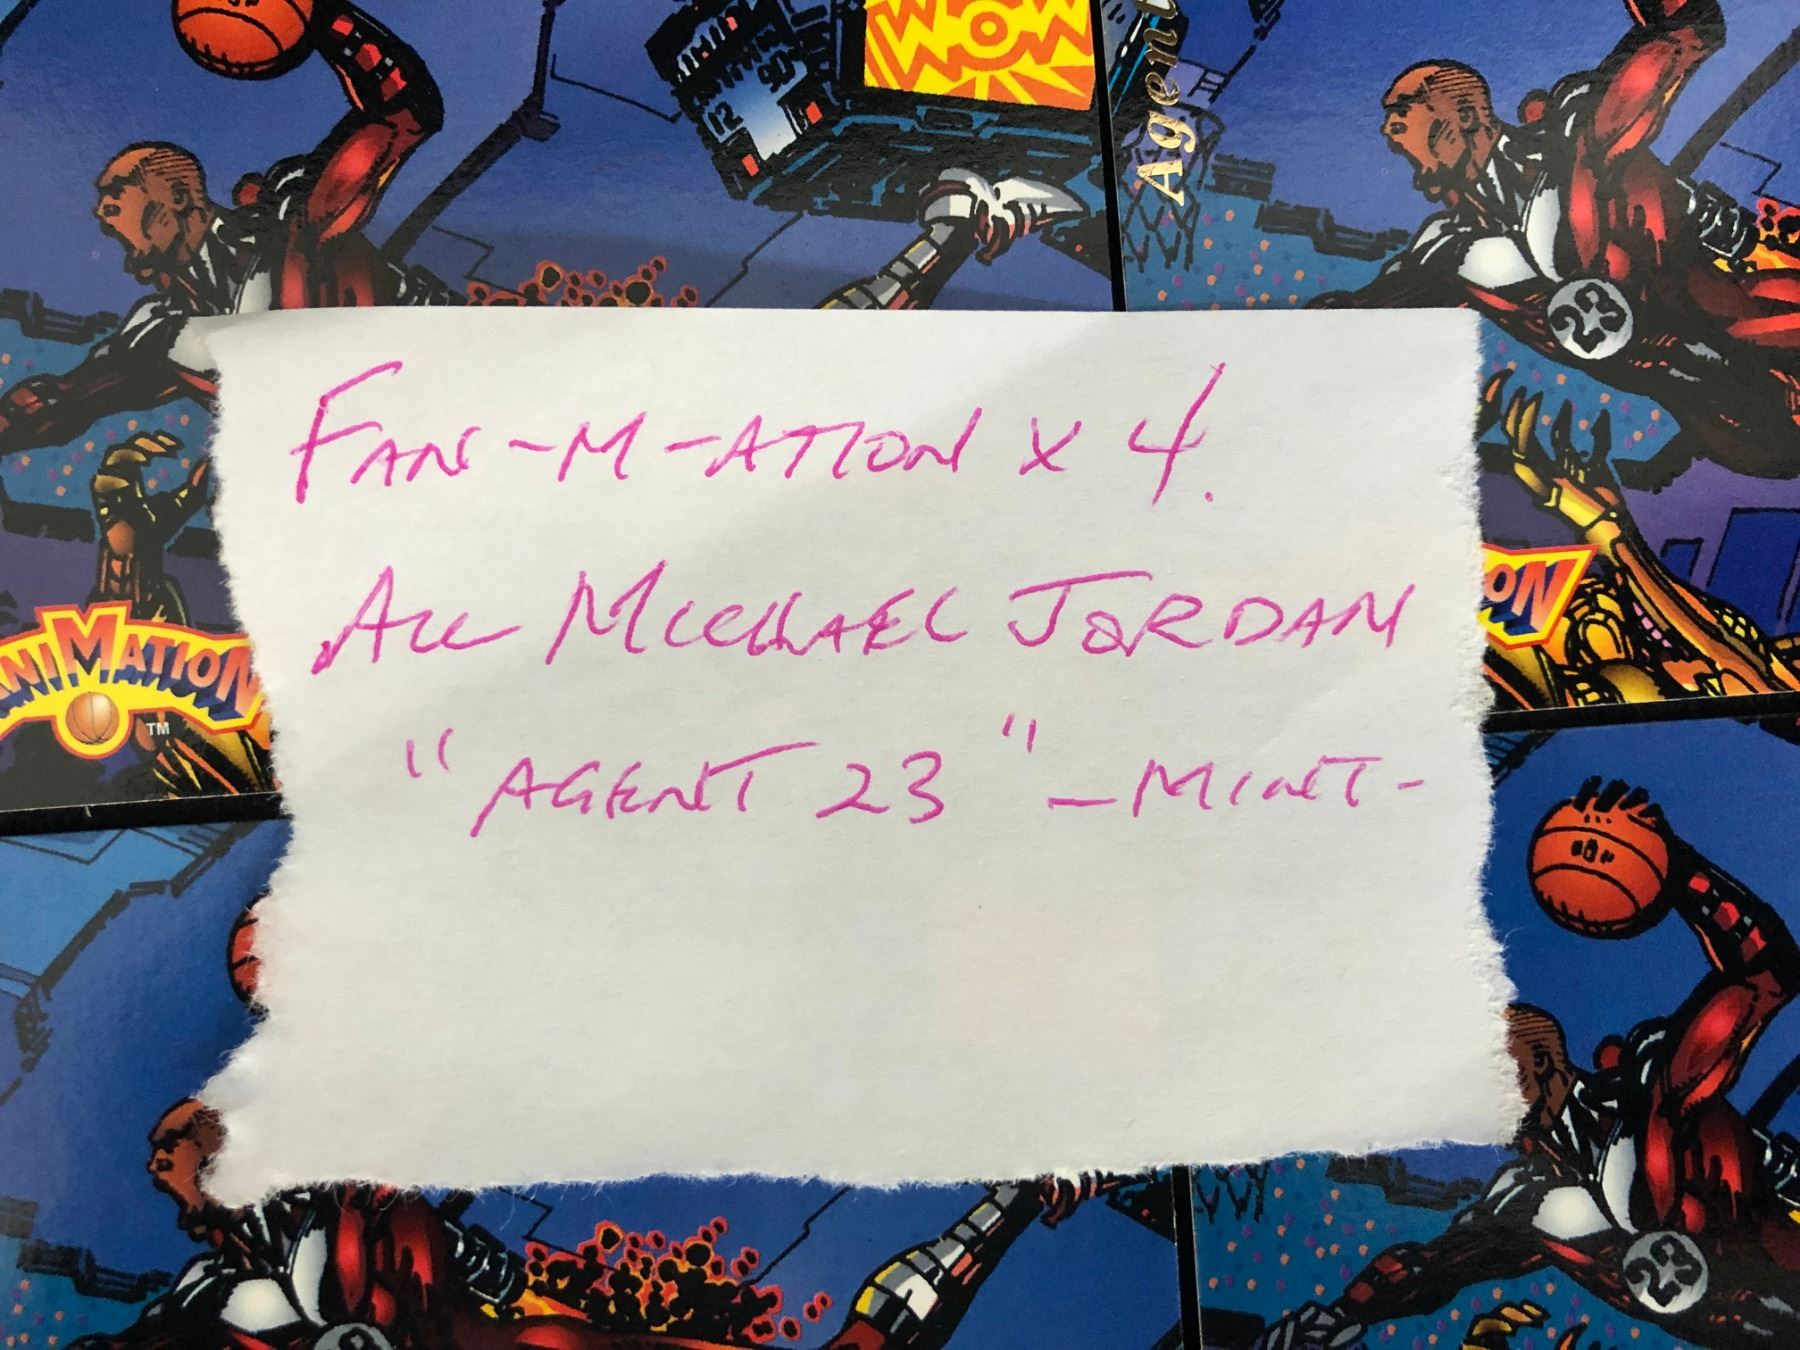 WOW
Agent
23
FAN-M-ATION X 4.
ALL MICHAEL JORDAN
"AGENT 23" -MINT-
ANIMATION
TM
ON
23